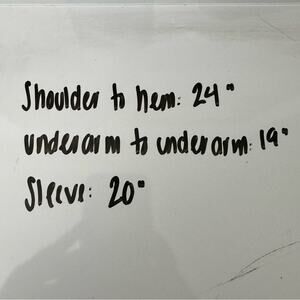 Shoulder to hem: 24"
underarm to underarm: 19"
Sleeve: 20"